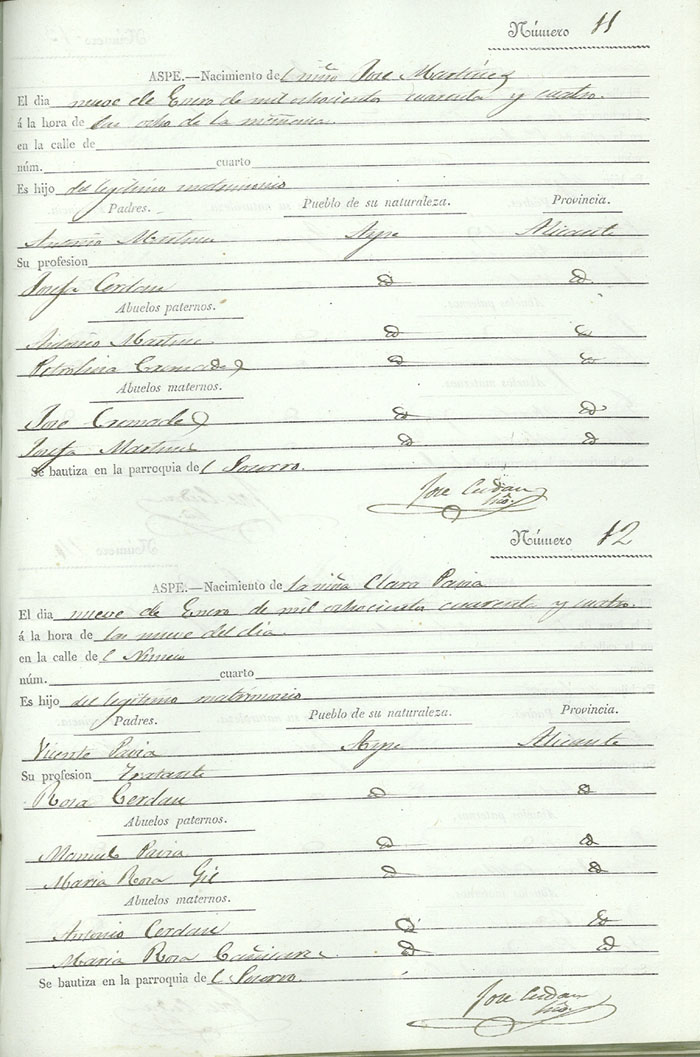 Número 11
ASPE.—Nacimiento de l niño Jose Martinez
El dia nueve de Enero de mil ochocientos cuarenta y cuatro.
á la hora de las ocho de la mañana
en la calle de
núm. cuarto
Es hijo del legitimo matrimonio
Padres. Pueblo de su naturaleza. Provincia.
Antonio Martinez Aspe Alicante
Su profesion
Josefa Cerdan id id
Abuelos paternos.
Antonio Martinez id id
Cremades id id
Abuelos maternos.
Jose Cremades id id
Josefa Martinez id id
Se bautiza en la parroquia de l Socorro.
Jose Cerdan
Número 12
ASPE.—Nacimiento de la niña Clara Pavia
El dia nueve de Enero de mil ochocientos cuarenta y cuatro.
á la hora de las nueve del dia
en la calle de l
núm. cuarto
Es hijo del legitimo matrimonio
Padres. Pueblo de su naturaleza. Provincia.
Vicente Pavia Aspe Alicante
Su profesion Tratante
Rosa Cerdan id id
Abuelos paternos.
Manuel Pavia id id
Maria Rosa Gil id id
Abuelos maternos.
Antonio Cerdan id id
Maria Rosa Cañizares id id
Se bautiza en la parroquia de l Socorro
Jose Cerdan